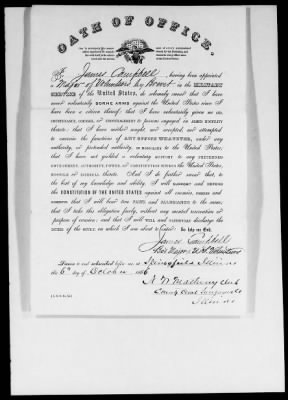 OATH OF OFFICE.
I, James Campbell, having been appointed
a Major of Volunteers by Brevet in the MILITARY
SERVICE of the United States, do solemnly swear that I have
never voluntarily BORNE ARMS against the United States since I
have been a citizen thereof; that I have voluntarily given no AID,
COUNTENANCE, COUNSEL, or ENCOURAGEMENT to persons engaged in ARMED HOSTILITY
thereto; that I have neither sought, nor accepted, nor attempted
to exercise the functions of ANY OFFICE WHATEVER, under any
authority, or pretended authority, in HOSTILITY to the United States;
that I have not yielded a voluntary support to any PRETENDED
GOVERNMENT, AUTHORITY, POWER, or CONSTITUTION WITHIN the United States,
HOSTILE or INIMICAL thereto. And I do further swear that, to
the best of my knowledge and ability, I will SUPPORT and DEFEND
the CONSTITUTION OF THE UNITED STATES against all enemies, FOREIGN and
DOMESTIC; that I will bear TRUE FAITH and ALLEGIANCE to the same;
that I take this obligation freely, without any mental reservation or
purpose of evasion; and that I will WELL and FAITHFULLY discharge the
DUTIES of the OFFICE on which I am about to enter: So help me God.
James Campbell
Bvt Major U.S. Volunteers
Sworn to and subscribed before me, at Springfield Illinois
this 6th day of October 1866
Clerk
Illinois